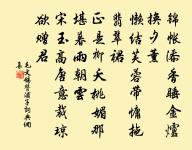 錦帳添香睡金爐
換夕薰
懶結芙蓉帶慵拖
翡翠裙
正是柳夭桃媚那
堪暮雨朝雲
宋玉高唐意裁瓊
欲贈君
毛文錫贊浦子詞典網
集